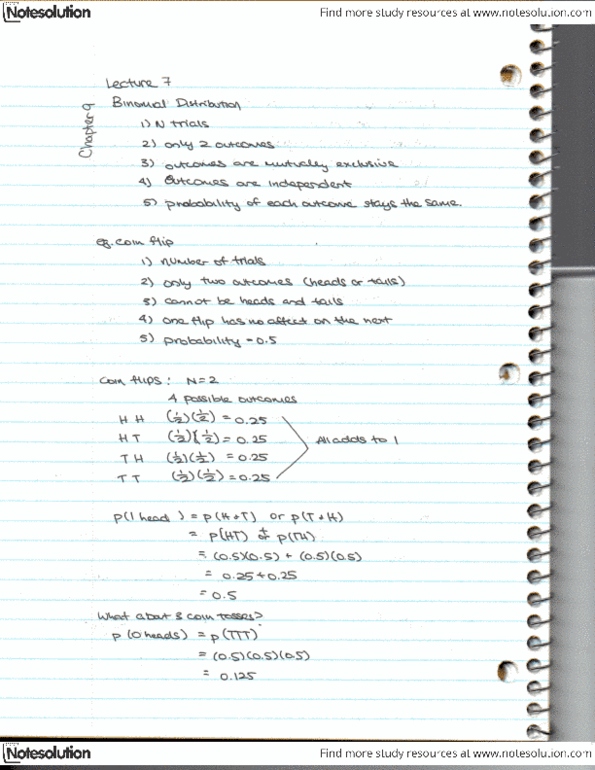 Notesolution
Find more study resources at www.notesolution.com
Lecture 7
Chapter 9
Binomial Distribution
1) N trials
2) only 2 outcomes
3) outcomes are mutually exclusive
4) outcomes are independent
5) probability of each outcome stays the same.
eg. coin flip
1) number of trials
2) only two outcomes (heads or tails)
3) cannot be heads and tails
4) one flip has no affect on the next
5) probability = 0.5
Coin flips: N=2
4 possible outcomes
H H (1/2)(1/2) = 0.25
H T (1/2)(1/2) = 0.25
T H (1/2)(1/2) = 0.25
T T (1/2)(1/2) = 0.25
All adds to 1
p(1 head) = p(H+T) or p(T+H)
= p(HT) + p(TH)
= (0.5)(0.5) + (0.5)(0.5)
= 0.25 + 0.25
= 0.5
What about 3 coin tosses?
p (0 heads) = p(TTT)
= (0.5)(0.5)(0.5)
= 0.125
Notesolution
Find more study resources at www.notesolution.com